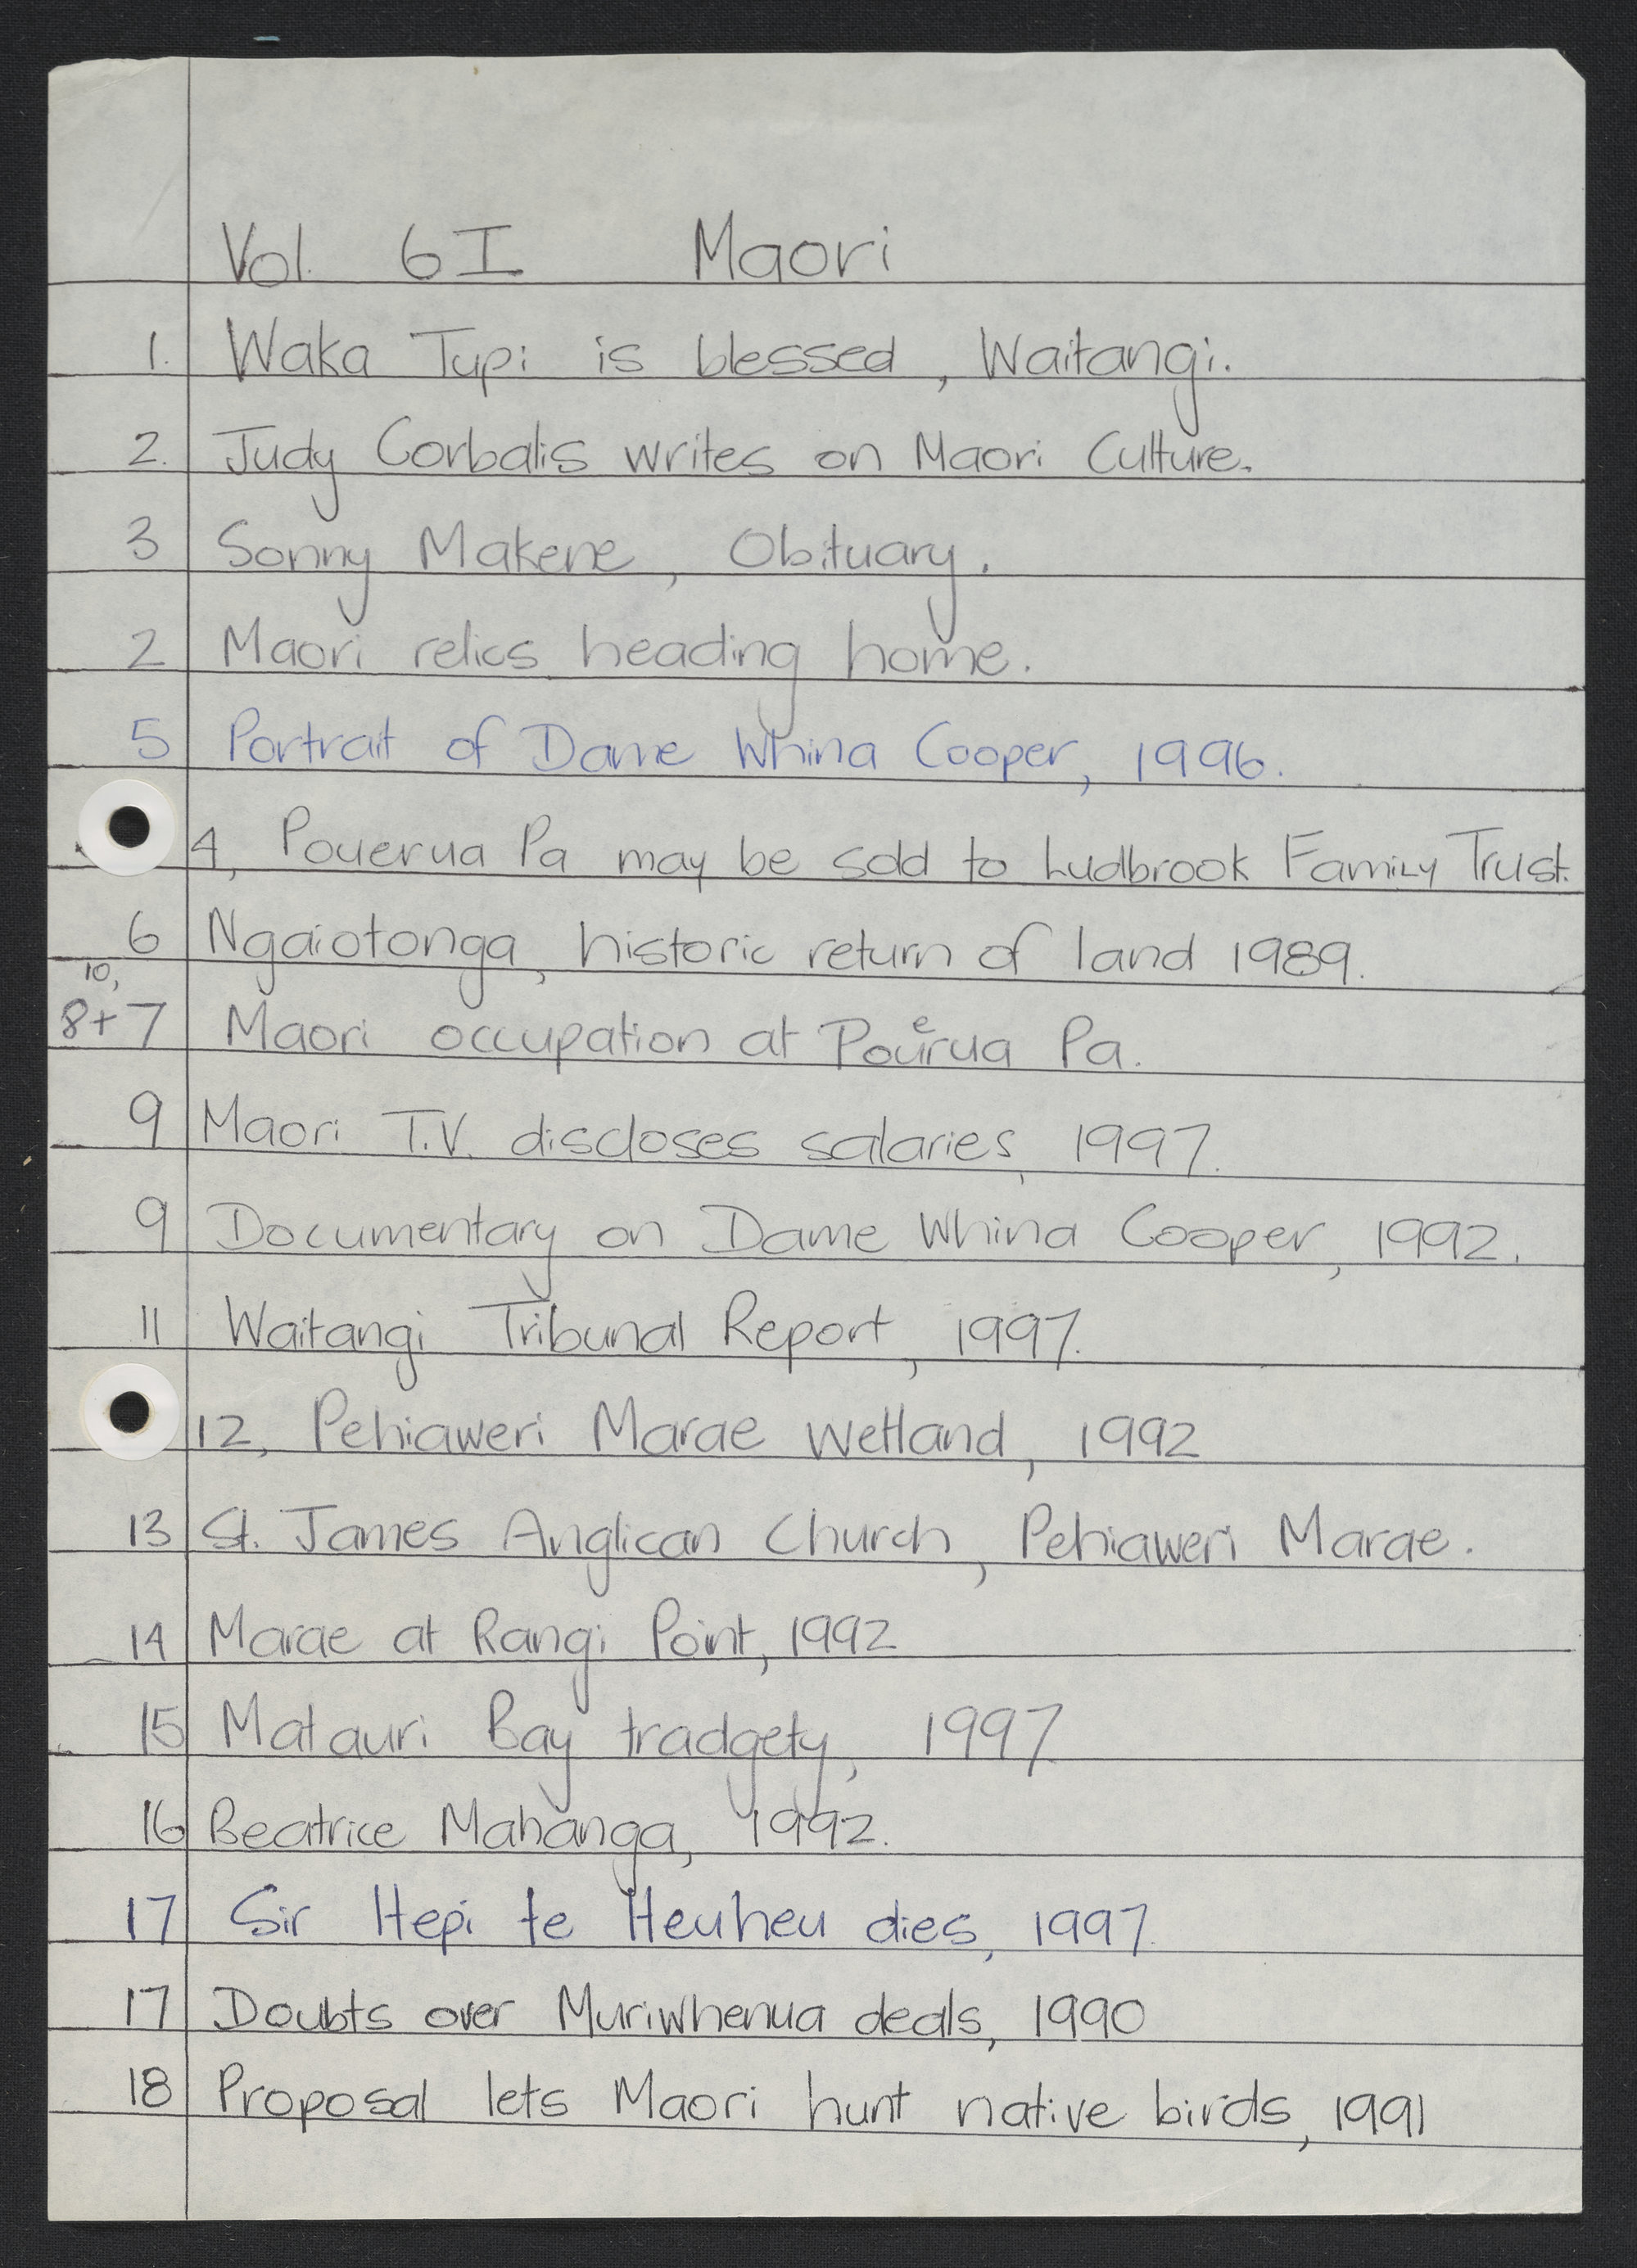 Vol. 6 I Maori
1. Waka Tupi is blessed, Waitangi.
2. Judy Corbalis writes on Maori Culture.
3 Sonny Makene, Obituary.
2 Maori relics heading home.
5 Portrait of Dame Whina Cooper, 1996.
4, Pouerua Pa may be sold to Ludbrook Family Trust.
6 Ngaiotonga, historic return of land 1989.
10,
8+7 Maori occupation at Pouerua Pa.
9 Maori T.V. discloses salaries, 1997.
9 Documentary on Dame Whina Cooper, 1992.
11 Waitangi Tribunal Report, 1997.
12, Pehiaweri Marae Wetland, 1992
13 St. James Anglican Church, Pehiaweri Marae.
14 Marae at Rangi Point, 1992
15 Matauri Bay tradgety, 1997
16 Beatrice Mahanga, 1992.
17 Sir Hepi te Heuheu dies, 1997.
17 Doubts over Muriwhenua deals, 1990
18 Proposal lets Maori hunt native birds, 1991